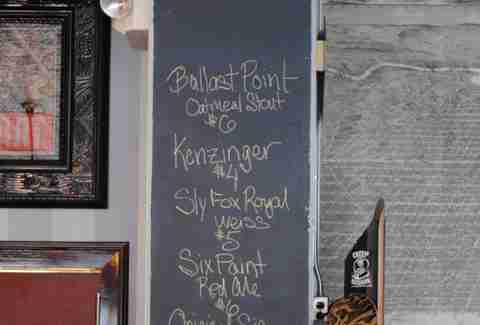 Ballast Point
Oatmeal Stout
$6
Kenzinger
$4
Sly Fox Royal
Weiss
$5
Six Point
Red Ale
$6